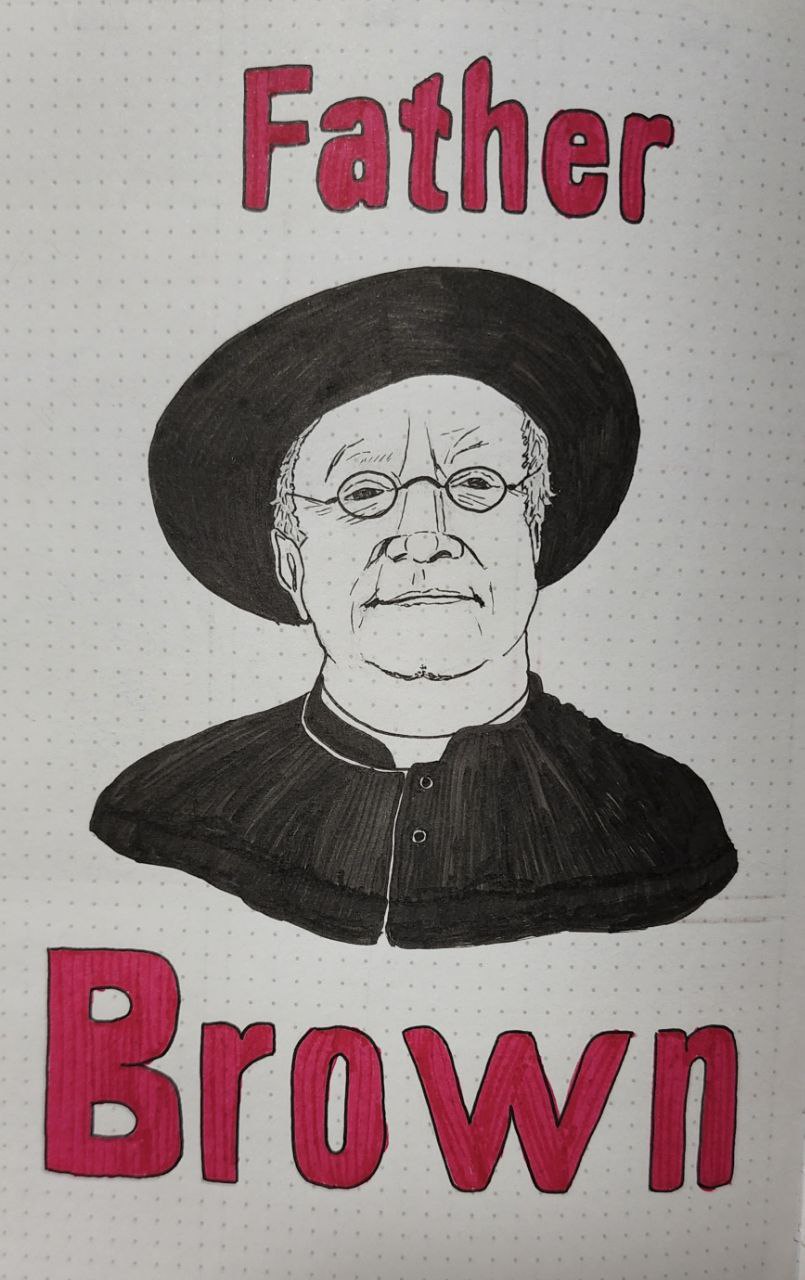 Father
Brown